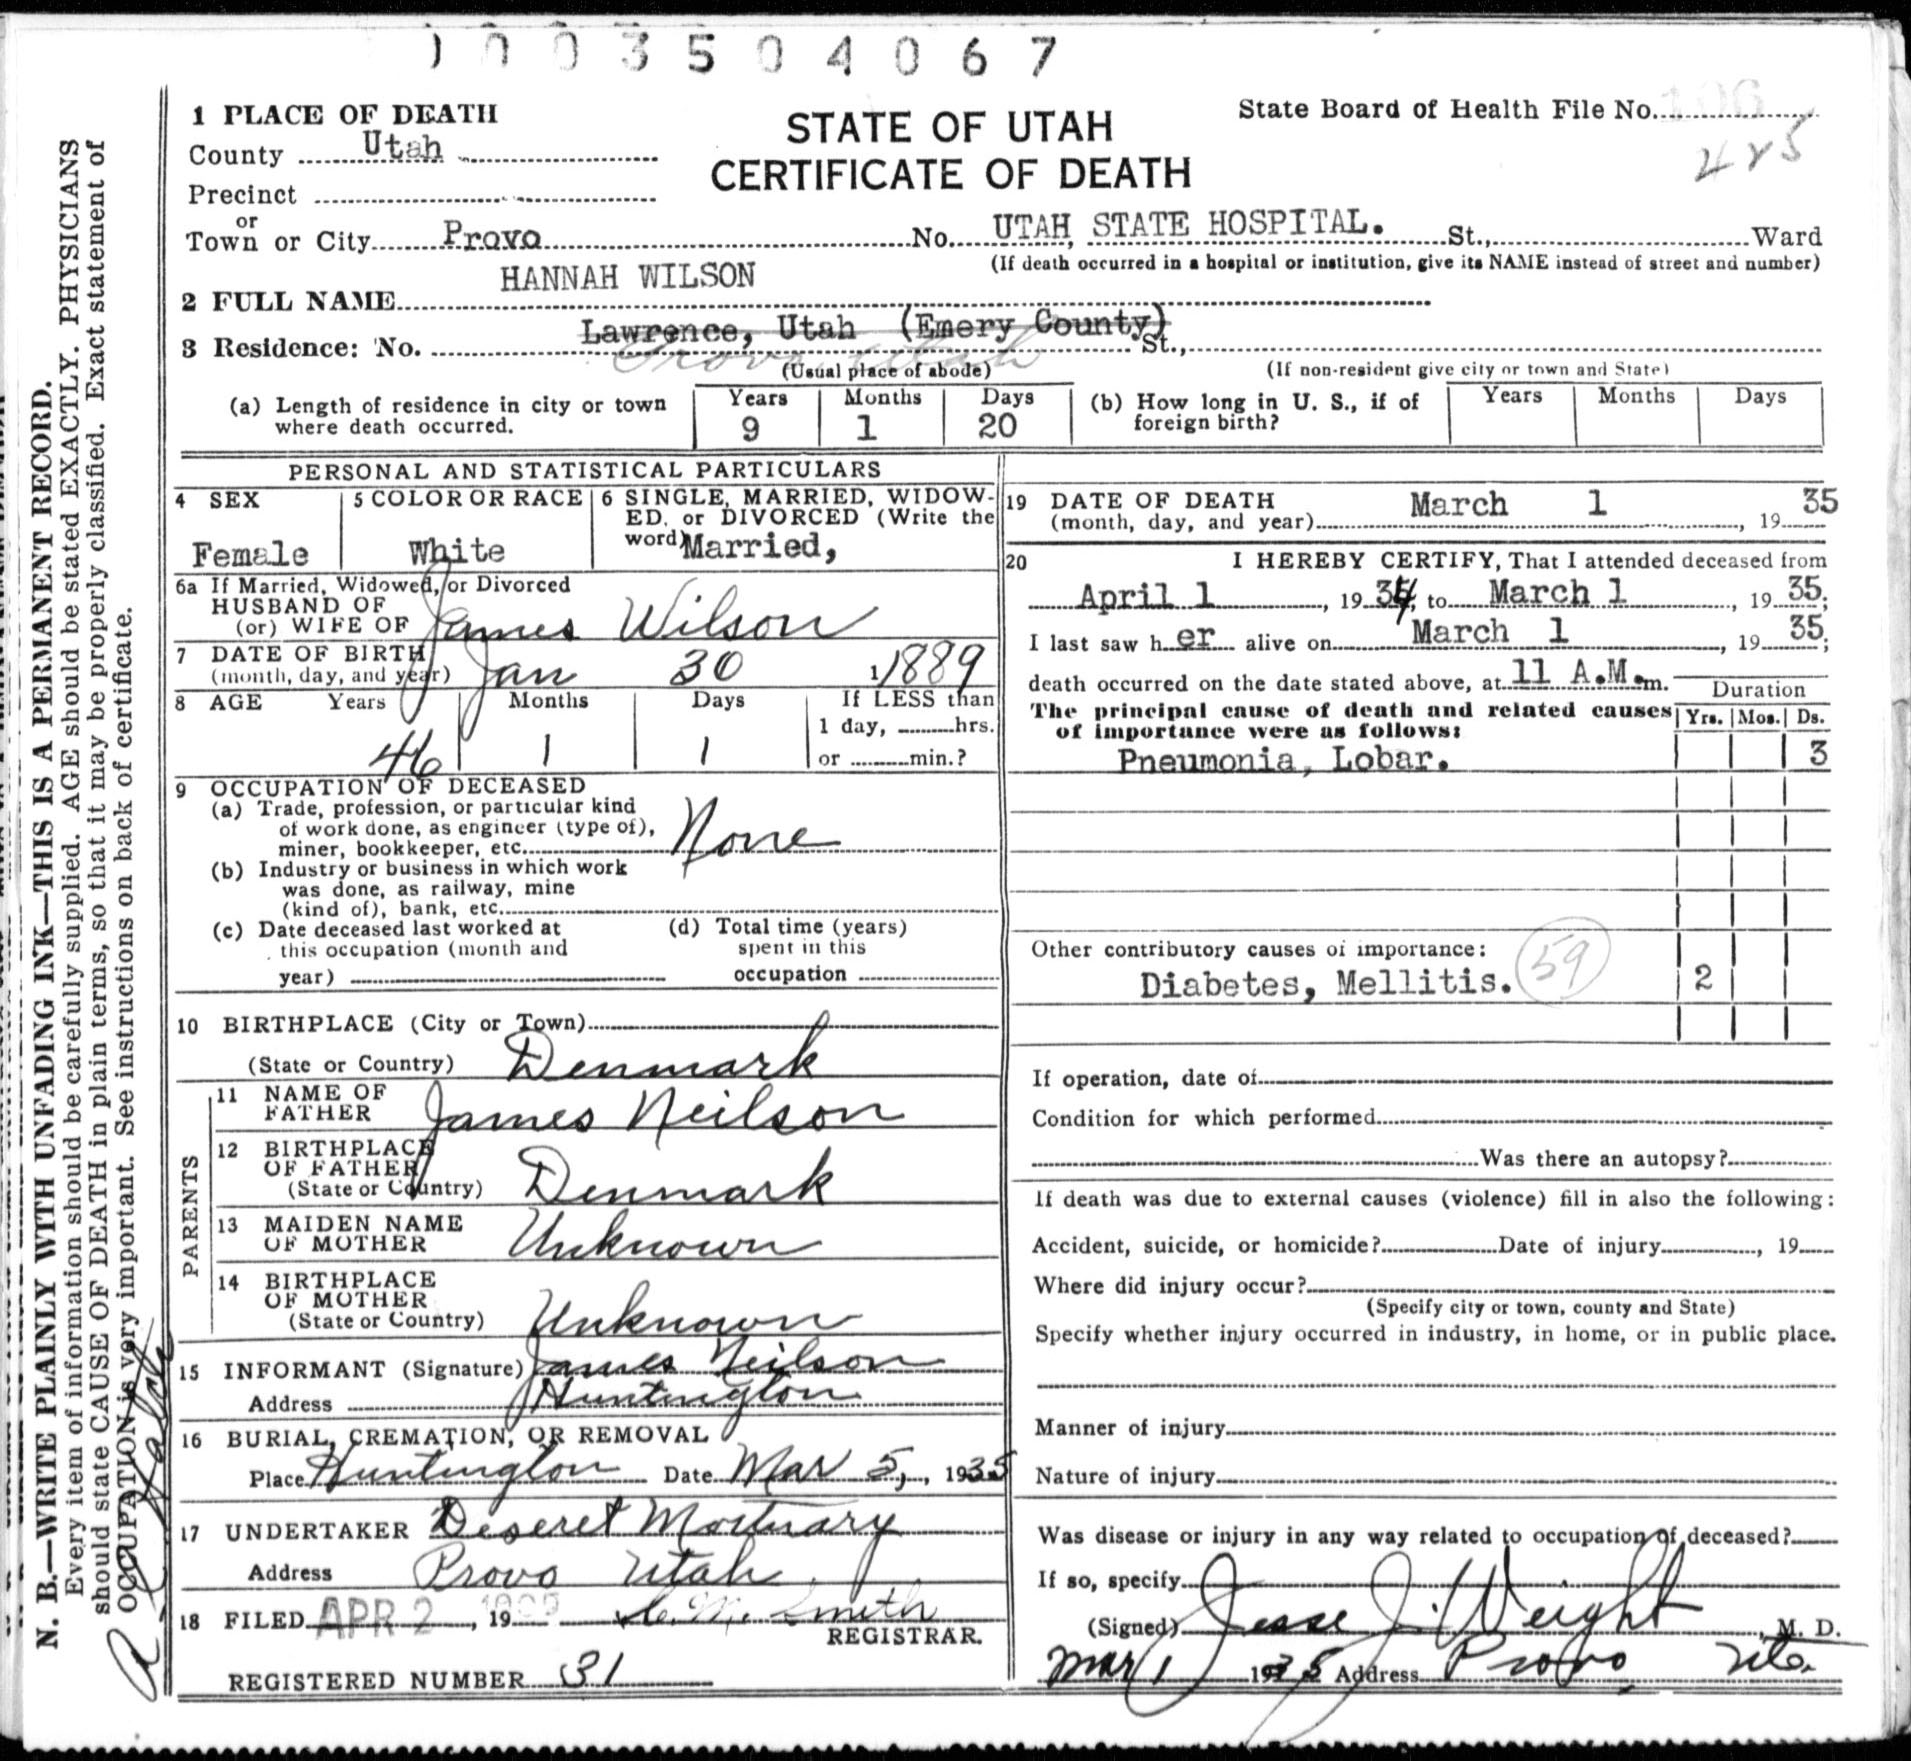 1003504067
1 PLACE OF DEATH
County Utah
Precinct
or
Town or City Provo No. UTAH STATE HOSPITAL. St., Ward
(If death occurred in a hospital or institution, give its NAME instead of street and number)
STATE OF UTAH
CERTIFICATE OF DEATH
State Board of Health File No. 106
425
2 FULL NAME HANNAH WILSON
3 Residence: No. Lawrence, Utah (Emery County) St.,
Provo Utah
(Usual place of abode) (If non-resident give city or town and State)
(a) Length of residence in city or town where death occurred. Years 9 Months 1 Days 20
(b) How long in U. S., if of foreign birth? Years Months Days
PERSONAL AND STATISTICAL PARTICULARS
4 SEX Female
5 COLOR OR RACE White
6 SINGLE, MARRIED, WIDOW-
ED, or DIVORCED (Write the
word) Married,
6a If Married, Widowed, or Divorced
HUSBAND OF
(or) WIFE OF James Wilson
7 DATE OF BIRTH
(month, day, and year) Jan 30 1 1889
8 AGE Years 46 Months 1 Days 1
If LESS than
1 day, hrs.
or min.?
9 OCCUPATION OF DECEASED
(a) Trade, profession, or particular kind
of work done, as engineer (type of),
miner, bookkeeper, etc. None
(b) Industry or business in which work
was done, as railway, mine
(kind of), bank, etc.
(c) Date deceased last worked at
this occupation (month and
year)
(d) Total time (years)
spent in this
occupation
10 BIRTHPLACE (City or Town)
(State or Country) Denmark
PARENTS
11 NAME OF
FATHER James Neilson
12 BIRTHPLACE
OF FATHER
(State or Country) Denmark
13 MAIDEN NAME
OF MOTHER Unknown
14 BIRTHPLACE
OF MOTHER
(State or Country) Unknown
15 INFORMANT (Signature) James Neilson
Address Huntington
16 BURIAL, CREMATION, OR REMOVAL
Place Huntington Date Mar 5, , 1935
17 UNDERTAKER Deseret Mortuary
Address Provo Utah
18 FILED APR 2 , 19 1935 Smith
REGISTRAR.
REGISTERED NUMBER 31
19 DATE OF DEATH
(month, day, and year) March 1 , 19 35
20 I HEREBY CERTIFY, That I attended deceased from
April 1 , 19 34, to March 1 , 19 35;
I last saw h er alive on March 1 , 19 35;
death occurred on the date stated above, at 11 A.M. m.
The principal cause of death and related causes
of importance were as follows:
Duration
Yrs. Mos. Ds.
Pneumonia, Lobar. 3
Other contributory causes of importance:
Diabetes, Mellitis. 59 2
If operation, date of
Condition for which performed
Was there an autopsy?
If death was due to external causes (violence) fill in also the following:
Accident, suicide, or homicide? Date of injury , 19
Where did injury occur?
(Specify city or town, county and State)
Specify whether injury occurred in industry, in home, or in public place.
Manner of injury
Nature of injury
Was disease or injury in any way related to occupation of deceased?
If so, specify
(Signed) Jesse J. Weight , M. D.
Mar 1 1935 Address Provo Uta.
N. B.—WRITE PLAINLY WITH UNFADING INK—THIS IS A PERMANENT RECORD.
Every item of information should be carefully supplied. AGE should be stated EXACTLY. PHYSICIANS
should state CAUSE OF DEATH in plain terms, so that it may be properly classified. Exact statement of
OCCUPATION is very important. See instructions on back of certificate.